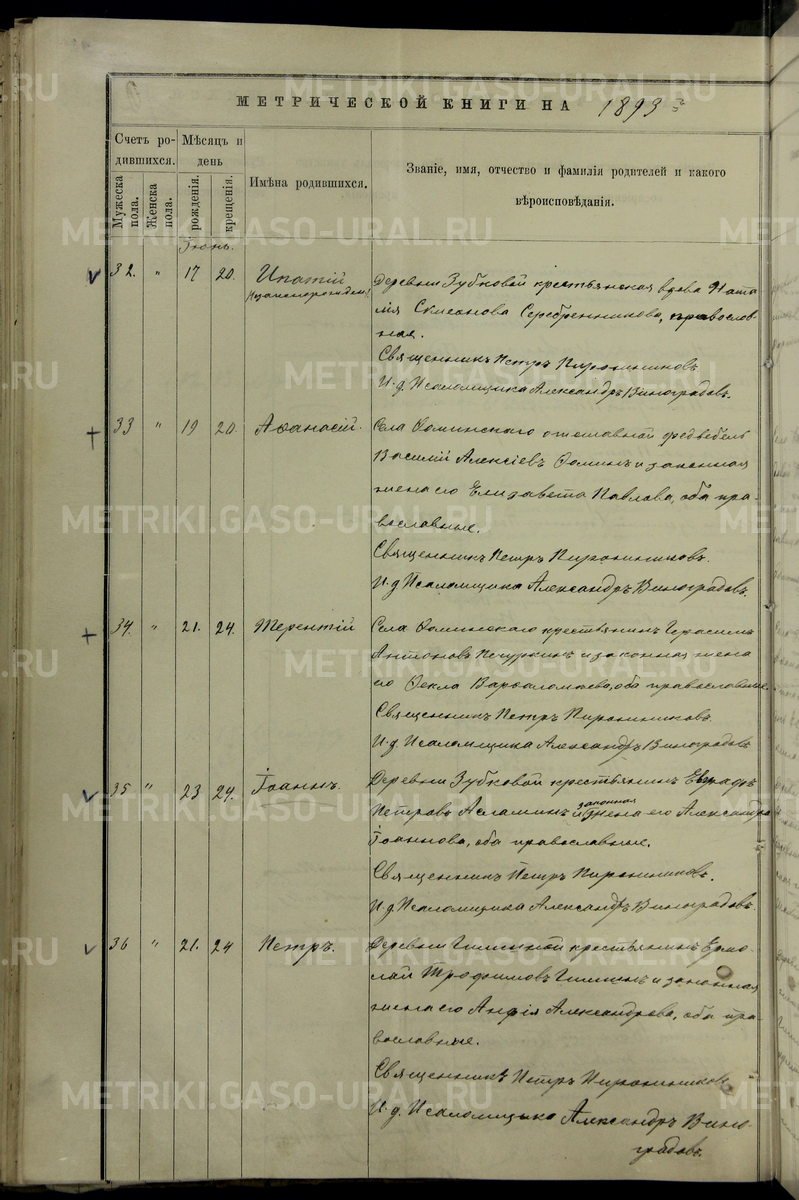 МЕТРИЧЕСКОЙ КНИГИ НА 1893
Счетъ ро-
дившихся.
Мѣсяцъ и
день
Мужеска
пола.
Женска
пола.
рожденія.
крещенія.
Имѣна родившихся.
Званіе, имя, отчество и фамилія родителей и какого
вѣроисповѣданія.
Іюнь.
32. " 17 20. Ипатій
Деревни Зубковой крестьянская вдова Ната
лія Серебренникова, православ-
ная.
Священникъ Петръ
И. д. Псаломщика Александръ Виноградовъ.
33 " 19 20 Аѳанасій.
Села Ѳоминскаго отставной фельдфебель
Василій Алексіевъ Ѳоминъ и законная
жена его Елизавета Павлова, оба пра-
вославные.
Священникъ Петръ
И. д Псаломщика Александръ Виноградовъ.
34. " 21. 24. Терентій
Села Ѳоминскаго крестьянинъ Герасимъ
Антоновъ и законная жена
его Ѳекла Варѳоломѣева, оба православные.
Священникъ Петръ
И. д. Псаломщика Александръ Виноградовъ
35 " 23 24. Іоаннъ.
Деревни Зубковой крестьянинъ
Петровъ и законная жена его Александра
Іоаннова, оба православные.
Священникъ Петръ
И. д. Псаломщика Александръ Виноградовъ.
36 " 21. 24 Петръ.
Деревни крестьянинъ Ермо-
лай Трофимовъ и законная
жена его Александрова, оба пра-
вославные.
Священникъ Петръ
И. д. Псаломщика Александръ Вино-
градовъ.
METRIKI.GASO-URAL.RU